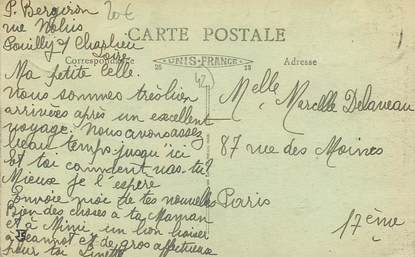 P. Bergiron
20€
rue Nobis
Pouilly s/ Charlieu
Loire
CARTE POSTALE
Correspondance
UNIS-FRANCE
Adresse
42
Ma petite Celle.
Nous sommes très bien
arrivées après un excellent
voyage. Nous avons assez
beau temps jusqu'ici
Et toi comment vas-tu?
Mieux je l'espère
Envoie moi de tes nouvelles
Bien des choses à ta Maman
et à Mimi un bon baiser
Jeannot et de gros affectueux
pour toi Linette
Melle Marcelle Delaveau
87 rue des Moines
Paris
17ème